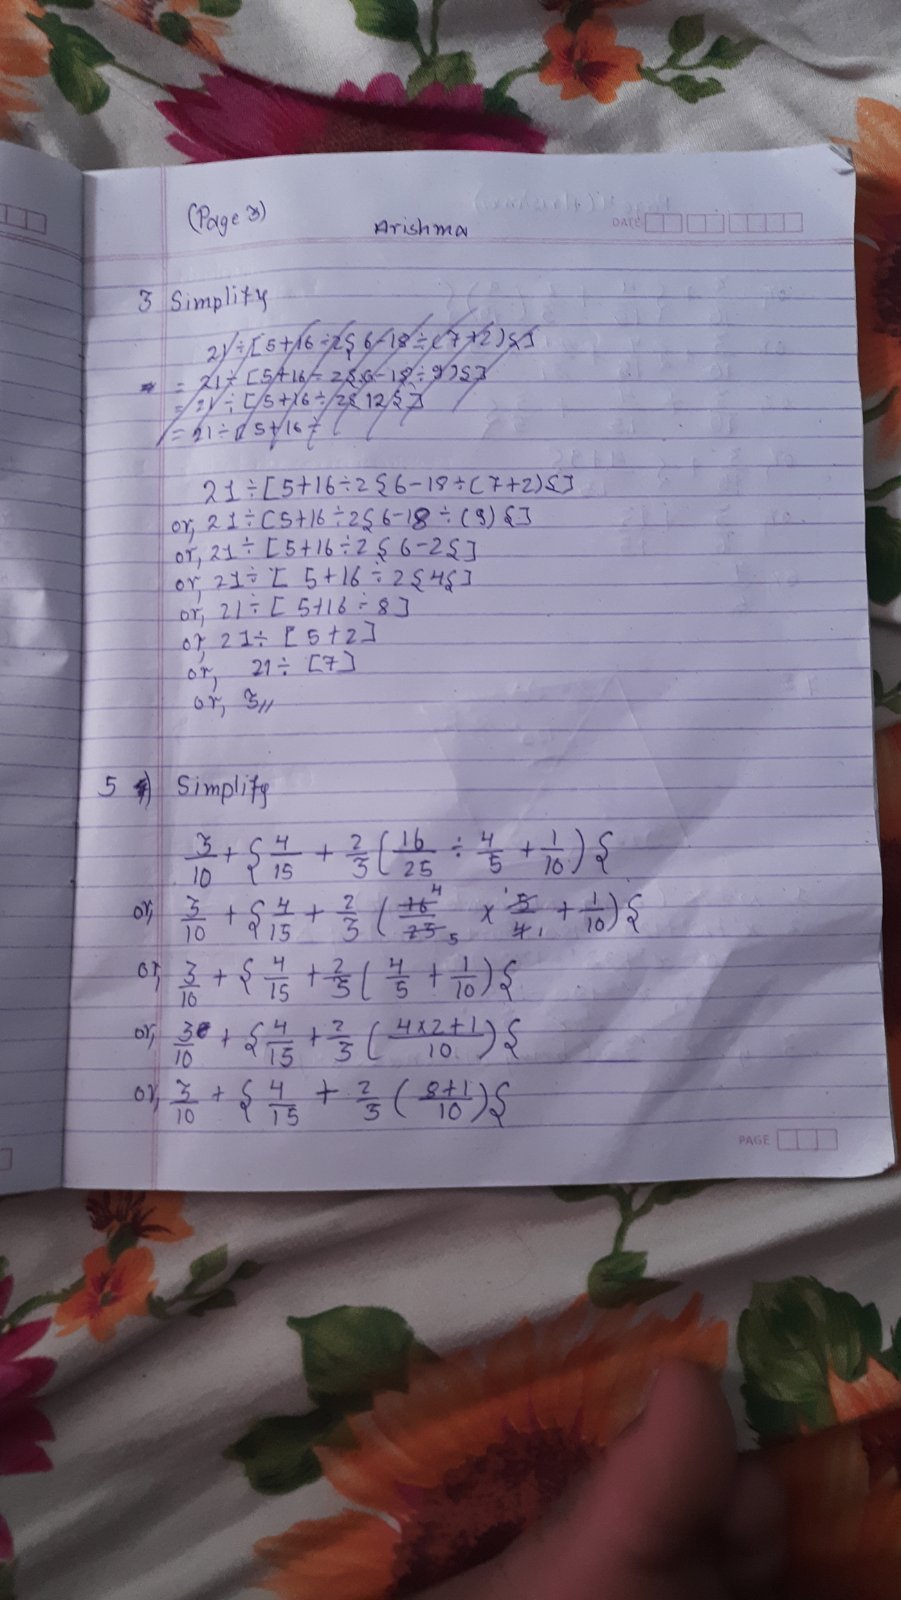 (Page 3)
Arishma
DATE
3 Simplify
21÷[5+16÷2{6-18÷(7+2){]
= 21÷[5+16÷2{6-18÷9){]
= 21÷[5+16÷2{12{]
= 21÷[5+16÷
21÷[5+16÷2{6-18÷(7+2){]
or, 21÷[5+16÷2{6-18÷(9){]
or, 21÷[5+16÷2{6-2{]
or, 21÷[5+16÷2{4{]
or, 21÷[5+16÷8]
or, 21÷[5+2]
or, 21÷[7]
or, 3//
5) Simplify
3/10 + { 4/15 + 2/3 ( 16/25 ÷ 4/5 + 1/10 ) {
or, 3/10 + { 4/15 + 2/3 ( 16 4/25 5 × 1 5/4 1 + 1/10 ) {
or, 3/10 + { 4/15 + 2/3 ( 4/5 + 1/10 ) {
or, 3/10 + { 4/15 + 2/3 ( 4×2+1/10 ) {
or, 3/10 + { 4/15 + 2/3 ( 8+1/10 ) {
PAGE